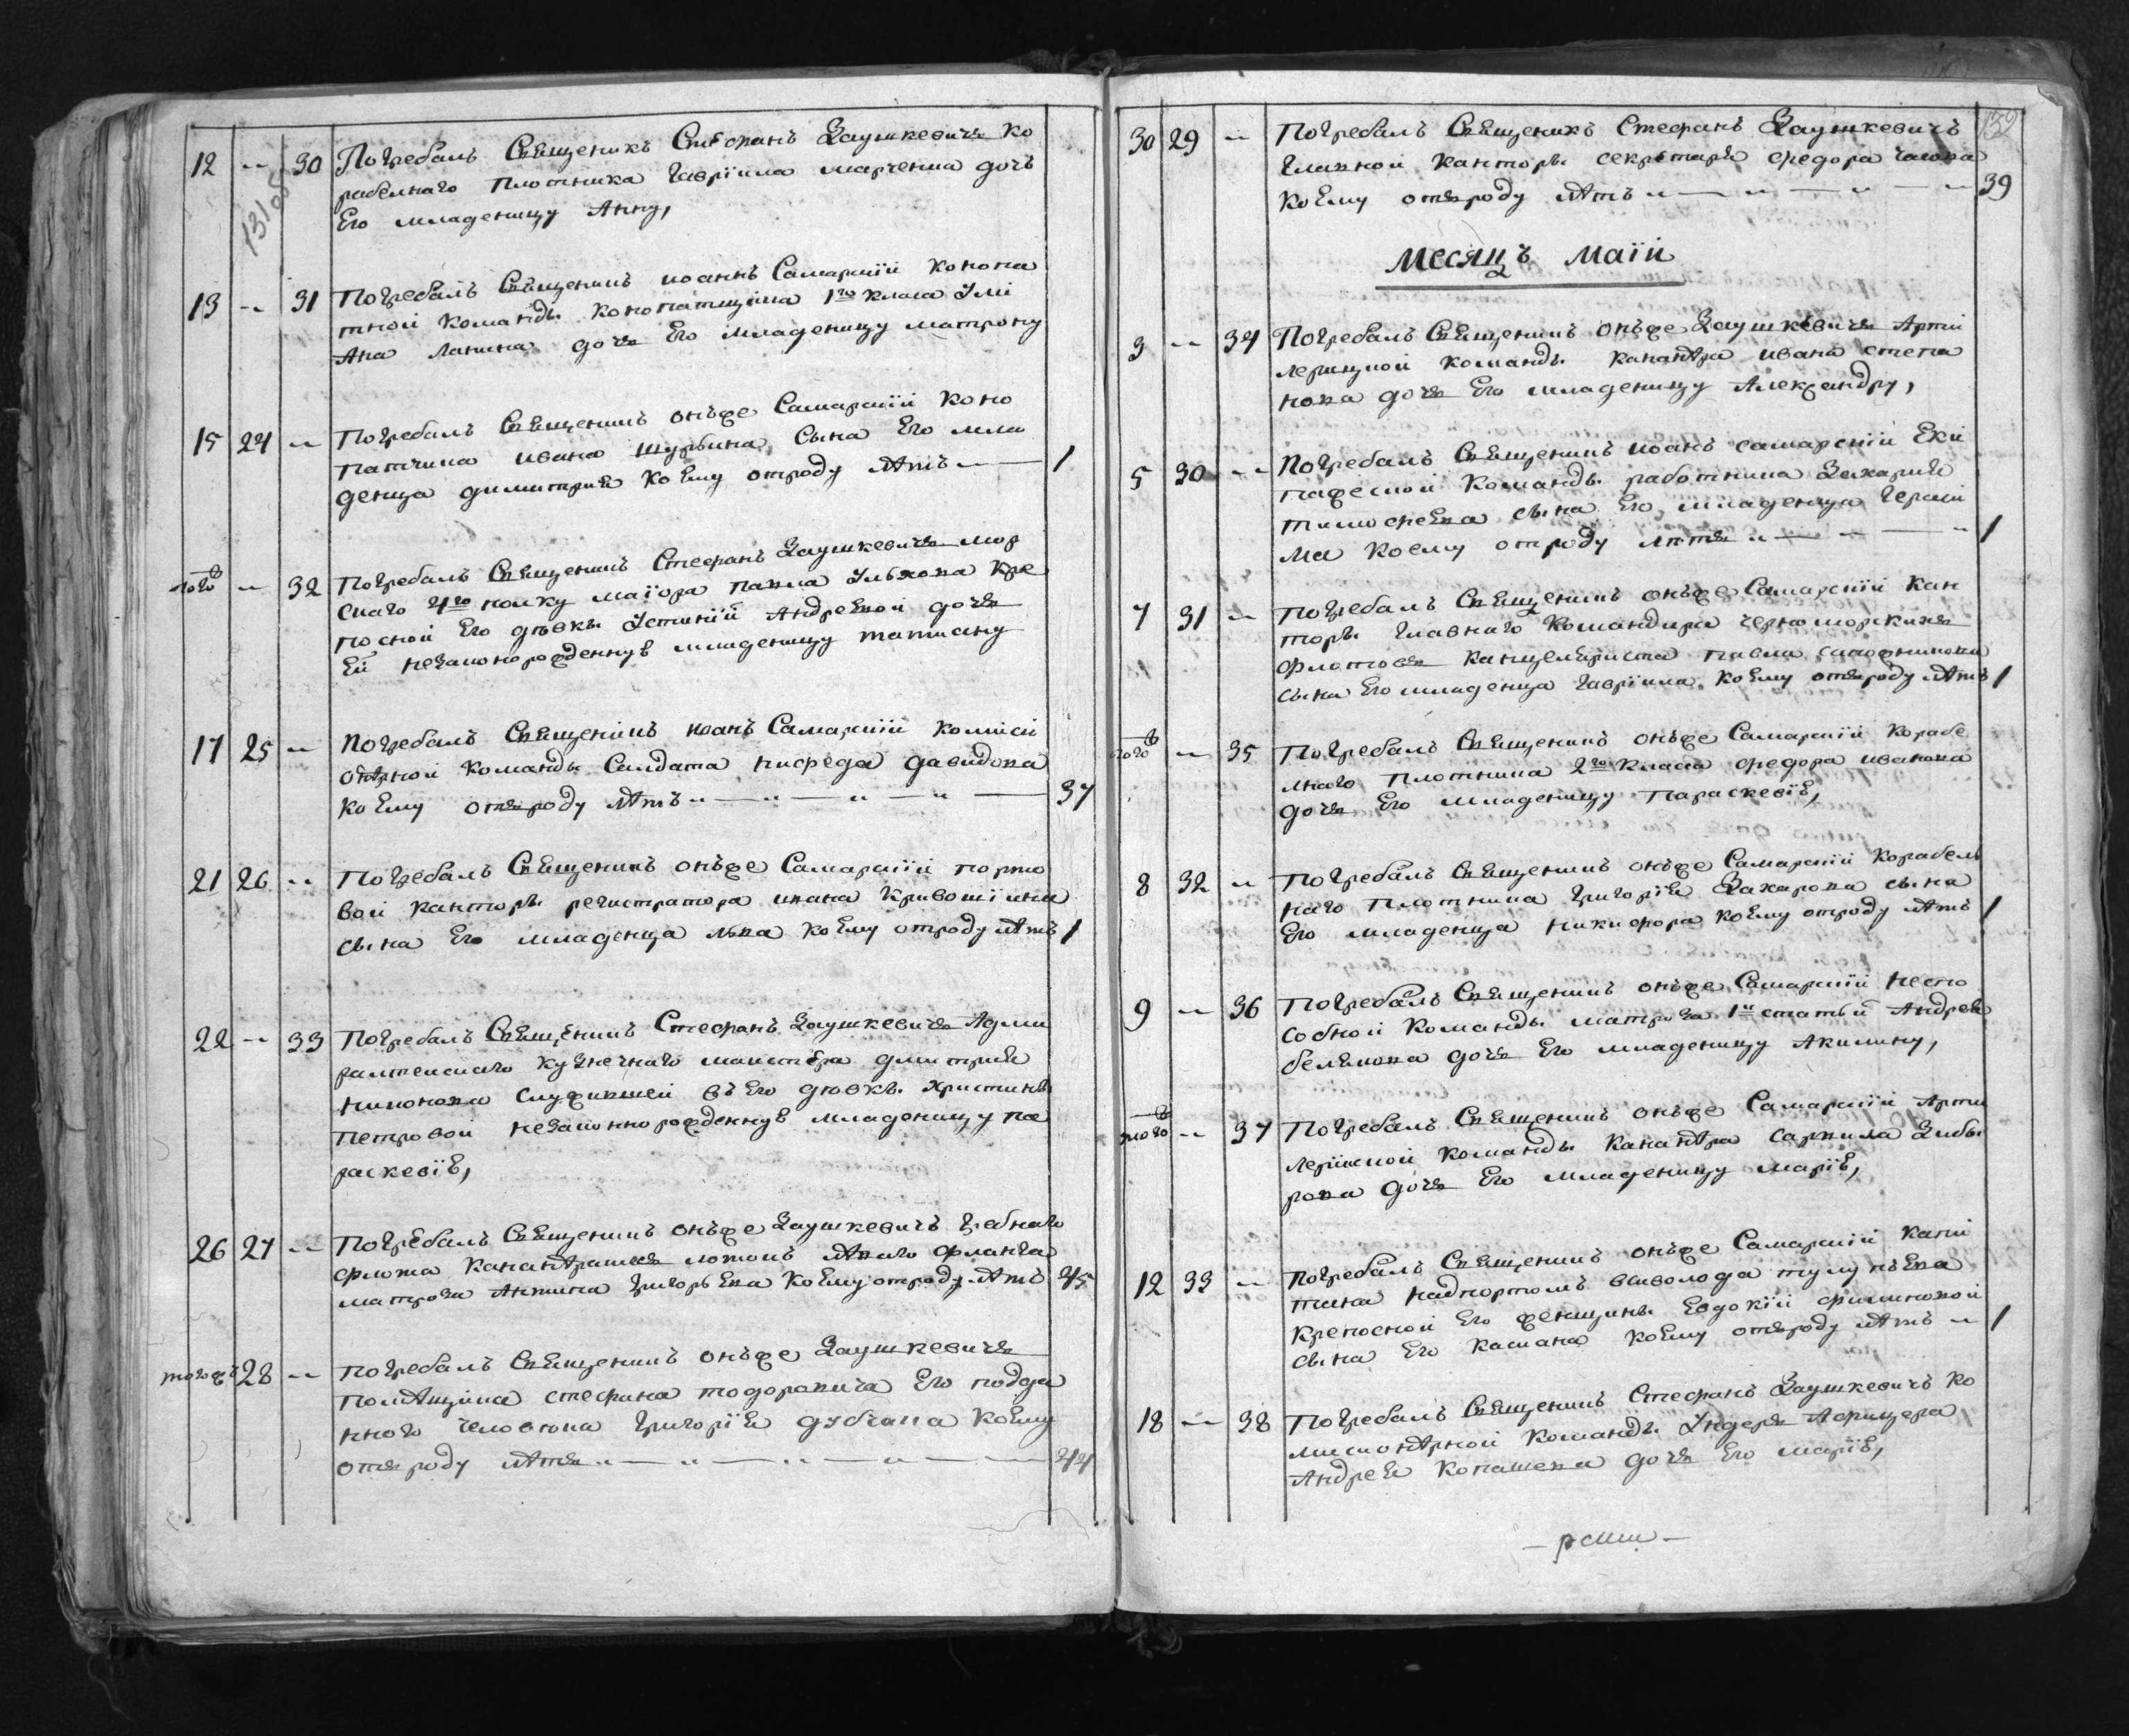 131 об
12 " 30 Погребалъ Священикъ Стефанъ Заушкевичъ ко
рабелнаго плотника Гавріила марченка дочь
Его младеницу Анну,
13 " 31 Погребалъ Священикъ иоаннъ Самарскій конопа
тной команды конопатщика 1го класа
дочь Его младеницу матрону
15 24 " Погребалъ Священикъ онъже Самарскій коно
патчика ивана щурбина сына Его мла
денца димитрия коему отроду лѣтъ 1
тогож " 32 Погребалъ Священикъ Стефанъ Заушкевичъ мор
скаго 4го полку маіора павла Ульянова кре
посной Его девки Устиніи Андреевой дочь
Ей незаконорожденную младеницу татиану
17 25 " Погребалъ Священикъ иоанъ Самарскій комиси
онѣрной команды Салдата нифеда давидова
коему отъроду лѣтъ 37
21 26 " Погребалъ Священикъ онъже Самарскій порто
вой канторы регистратора ивана кривошіина
сына Его младенца льва коему отроду лѣтъ 1
22 " 33 Погребалъ Священикъ Стефанъ Заушкевичъ Адми
ралтейскаго кузнечнаго маистера дмитрия
никонова служившей въ Его девки христины
петровой незаконнорожденную младеницу па
раскевію,
26 27 " Погребалъ Священикъ онъже Заушкевичъ гребнаго
флота лѣваго фланга
матроза Антипа григорьева коему отроду лѣтъ 45
тогожъ 28 " Погребалъ Священикъ онъже Заушкевичъ
помѣщика стефана тодоровича Его подда
нного человека григорія коему
отъроду лѣтъ 44
132
30 29 " Погребалъ Священикъ Стефанъ Заушкевичъ
главной канторы секретаря федора
коему отъроду лѣтъ 39
Месяцъ маіи
3 " 34 Погребалъ Священикъ онъже Заушкевичъ Арти
лерискои команды канонѣра ивана степа
нова дочь Его младеницу Александру,
5 30 " Погребалъ Священикъ иоанъ самарскій Еки
пажеской команды работника Захария
тимофеева сына Его младенца Гераси
ма коему отроду лѣтъ 1
7 31 " Погребалъ Священикъ онъже Самарскій кан
торы главнаго командира черноморскихъ
флотовъ канцеляриста павла
сына Его младенца Гавріила коему отъроду лѣтъ 1
тогож " 35 Погребалъ Священикъ онъже Самарскій корабе
лнаго плотника 2го класса федора иванова
дочь Его младеницу параскевію,
8 32 " Погребалъ Священикъ онъже Самарскій корабель
наго плотника григорія Захарова сына
Его младенца никифора коему отроду лѣтъ 1
9 " 36 Погребалъ Священикъ онъже Самарскій неспо
собной команды матроза 1й статьи Андрея
белякова дочь Его младеницу Акилину,
тогож " 37 Погребалъ Священикъ онъже Самарскій Арти
лерійской команды канонѣра
дочь Его младеницу марію,
12 33 " Погребалъ Священикъ онъже Самарскій капи
тана надпортомъ всеволода тулупьева
крепосной Его женщины Евдокіи филиповой
сына Его касиана коему отъроду лѣтъ 1
18 " 38 Погребалъ Священикъ Стефанъ Заушкевичъ ко
мисионѣрной команды Ундеръ Афицера
Андрея дочь Его марію,